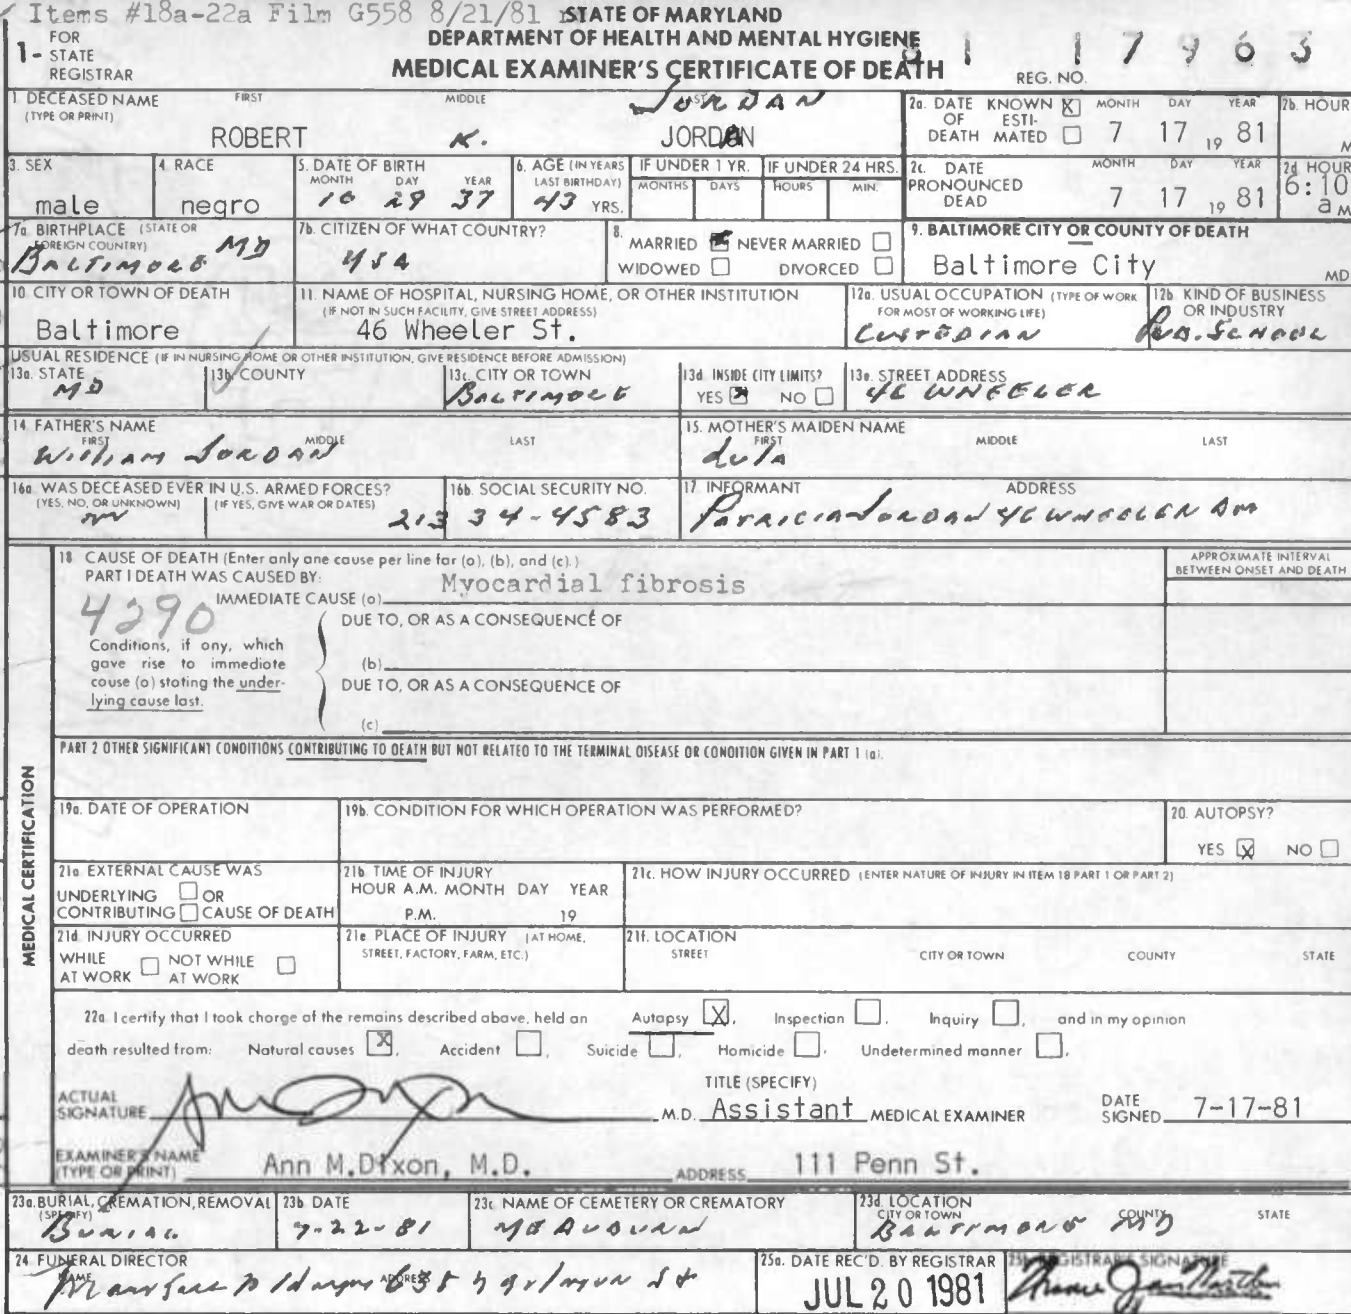 Items #18a-22a Film G558 8/21/81
STATE OF MARYLAND
DEPARTMENT OF HEALTH AND MENTAL HYGIENE
MEDICAL EXAMINER'S CERTIFICATE OF DEATH
1- FOR STATE REGISTRAR
REG. NO. 81 17963
1. DECEASED NAME (TYPE OR PRINT) FIRST MIDDLE LAST
JORDAN
ROBERT K. JORDAN
2a. DATE OF DEATH KNOWN [X] ESTIMATED [ ] MONTH DAY YEAR
7 17 19 81
2b. HOUR M
3. SEX male
4. RACE negro
5. DATE OF BIRTH MONTH DAY YEAR 10 29 37
6. AGE (IN YEARS LAST BIRTHDAY) 43 YRS.
IF UNDER 1 YR. MONTHS DAYS
IF UNDER 24 HRS. HOURS MIN.
2c. DATE PRONOUNCED DEAD MONTH DAY YEAR 7 17 19 81
2d HOUR 6:10 a M
7a. BIRTHPLACE (STATE OR FOREIGN COUNTRY) BALTIMORE MD
7b. CITIZEN OF WHAT COUNTRY? USA
8. MARRIED [X] NEVER MARRIED [ ]
WIDOWED [ ] DIVORCED [ ]
9. BALTIMORE CITY OR COUNTY OF DEATH
Baltimore City MD
10. CITY OR TOWN OF DEATH Baltimore
11. NAME OF HOSPITAL, NURSING HOME, OR OTHER INSTITUTION
(IF NOT IN SUCH FACILITY, GIVE STREET ADDRESS)
46 Wheeler St.
12a. USUAL OCCUPATION (TYPE OF WORK FOR MOST OF WORKING LIFE) CUSTODIAN
12b. KIND OF BUSINESS OR INDUSTRY PUB. SCHOOL
USUAL RESIDENCE (IF IN NURSING HOME OR OTHER INSTITUTION, GIVE RESIDENCE BEFORE ADMISSION)
13a. STATE MD
13b. COUNTY
13c. CITY OR TOWN BALTIMORE
13d. INSIDE CITY LIMITS? YES [X] NO [ ]
13e. STREET ADDRESS 46 WHEELER
14. FATHER'S NAME FIRST MIDDLE LAST
William JORDAN
15. MOTHER'S MAIDEN NAME FIRST MIDDLE LAST
Lula
16a. WAS DECEASED EVER IN U.S. ARMED FORCES?
(YES, NO, OR UNKNOWN) (IF YES, GIVE WAR OR DATES)
16b. SOCIAL SECURITY NO. 213 34-4583
17. INFORMANT ADDRESS
PATRICIA JORDAN 46 WHEELER
MEDICAL CERTIFICATION
18 CAUSE OF DEATH (Enter only one cause per line for (a), (b), and (c).)
PART I DEATH WAS CAUSED BY:
IMMEDIATE CAUSE (a) Myocardial fibrosis
APPROXIMATE INTERVAL BETWEEN ONSET AND DEATH
4290
DUE TO, OR AS A CONSEQUENCE OF
Conditions, if any, which gave rise to immediate cause (a) stating the underlying cause last.
(b)
DUE TO, OR AS A CONSEQUENCE OF
(c)
PART 2 OTHER SIGNIFICANT CONDITIONS CONTRIBUTING TO DEATH BUT NOT RELATED TO THE TERMINAL DISEASE OR CONDITION GIVEN IN PART 1 (a).
19a. DATE OF OPERATION
19b. CONDITION FOR WHICH OPERATION WAS PERFORMED?
20. AUTOPSY? YES [X] NO [ ]
21a. EXTERNAL CAUSE WAS
UNDERLYING [ ] OR
CONTRIBUTING [ ] CAUSE OF DEATH
21b. TIME OF INJURY
HOUR A.M. MONTH DAY YEAR
P.M. 19
21c. HOW INJURY OCCURRED (ENTER NATURE OF INJURY IN ITEM 18 PART 1 OR PART 2)
21d. INJURY OCCURRED
WHILE AT WORK [ ] NOT WHILE AT WORK [ ]
21e PLACE OF INJURY (AT HOME, STREET, FACTORY, FARM, ETC.)
21f. LOCATION
STREET CITY OR TOWN COUNTY STATE
22a. I certify that I took charge of the remains described above, held an Autopsy [X], Inspection [ ], Inquiry [ ], and in my opinion
death resulted from: Natural causes [X], Accident [ ], Suicide [ ], Homicide [ ], Undetermined manner [ ],
ACTUAL SIGNATURE M.D.
TITLE (SPECIFY) Assistant MEDICAL EXAMINER
DATE SIGNED 7-17-81
EXAMINER'S NAME (TYPE OR PRINT) Ann M.Dixon, M.D.
ADDRESS 111 Penn St.
23a. BURIAL, CREMATION, REMOVAL (SPECIFY) BURIAL
23b. DATE 7-22-81
23c. NAME OF CEMETERY OR CREMATORY MT AUBURN
23d. LOCATION CITY OR TOWN COUNTY STATE
BALTIMORE MD
24. FUNERAL DIRECTOR
NAME ADDRESS
638 St
25a. DATE REC'D. BY REGISTRAR
JUL 20 1981
25b. REGISTRAR'S SIGNATURE